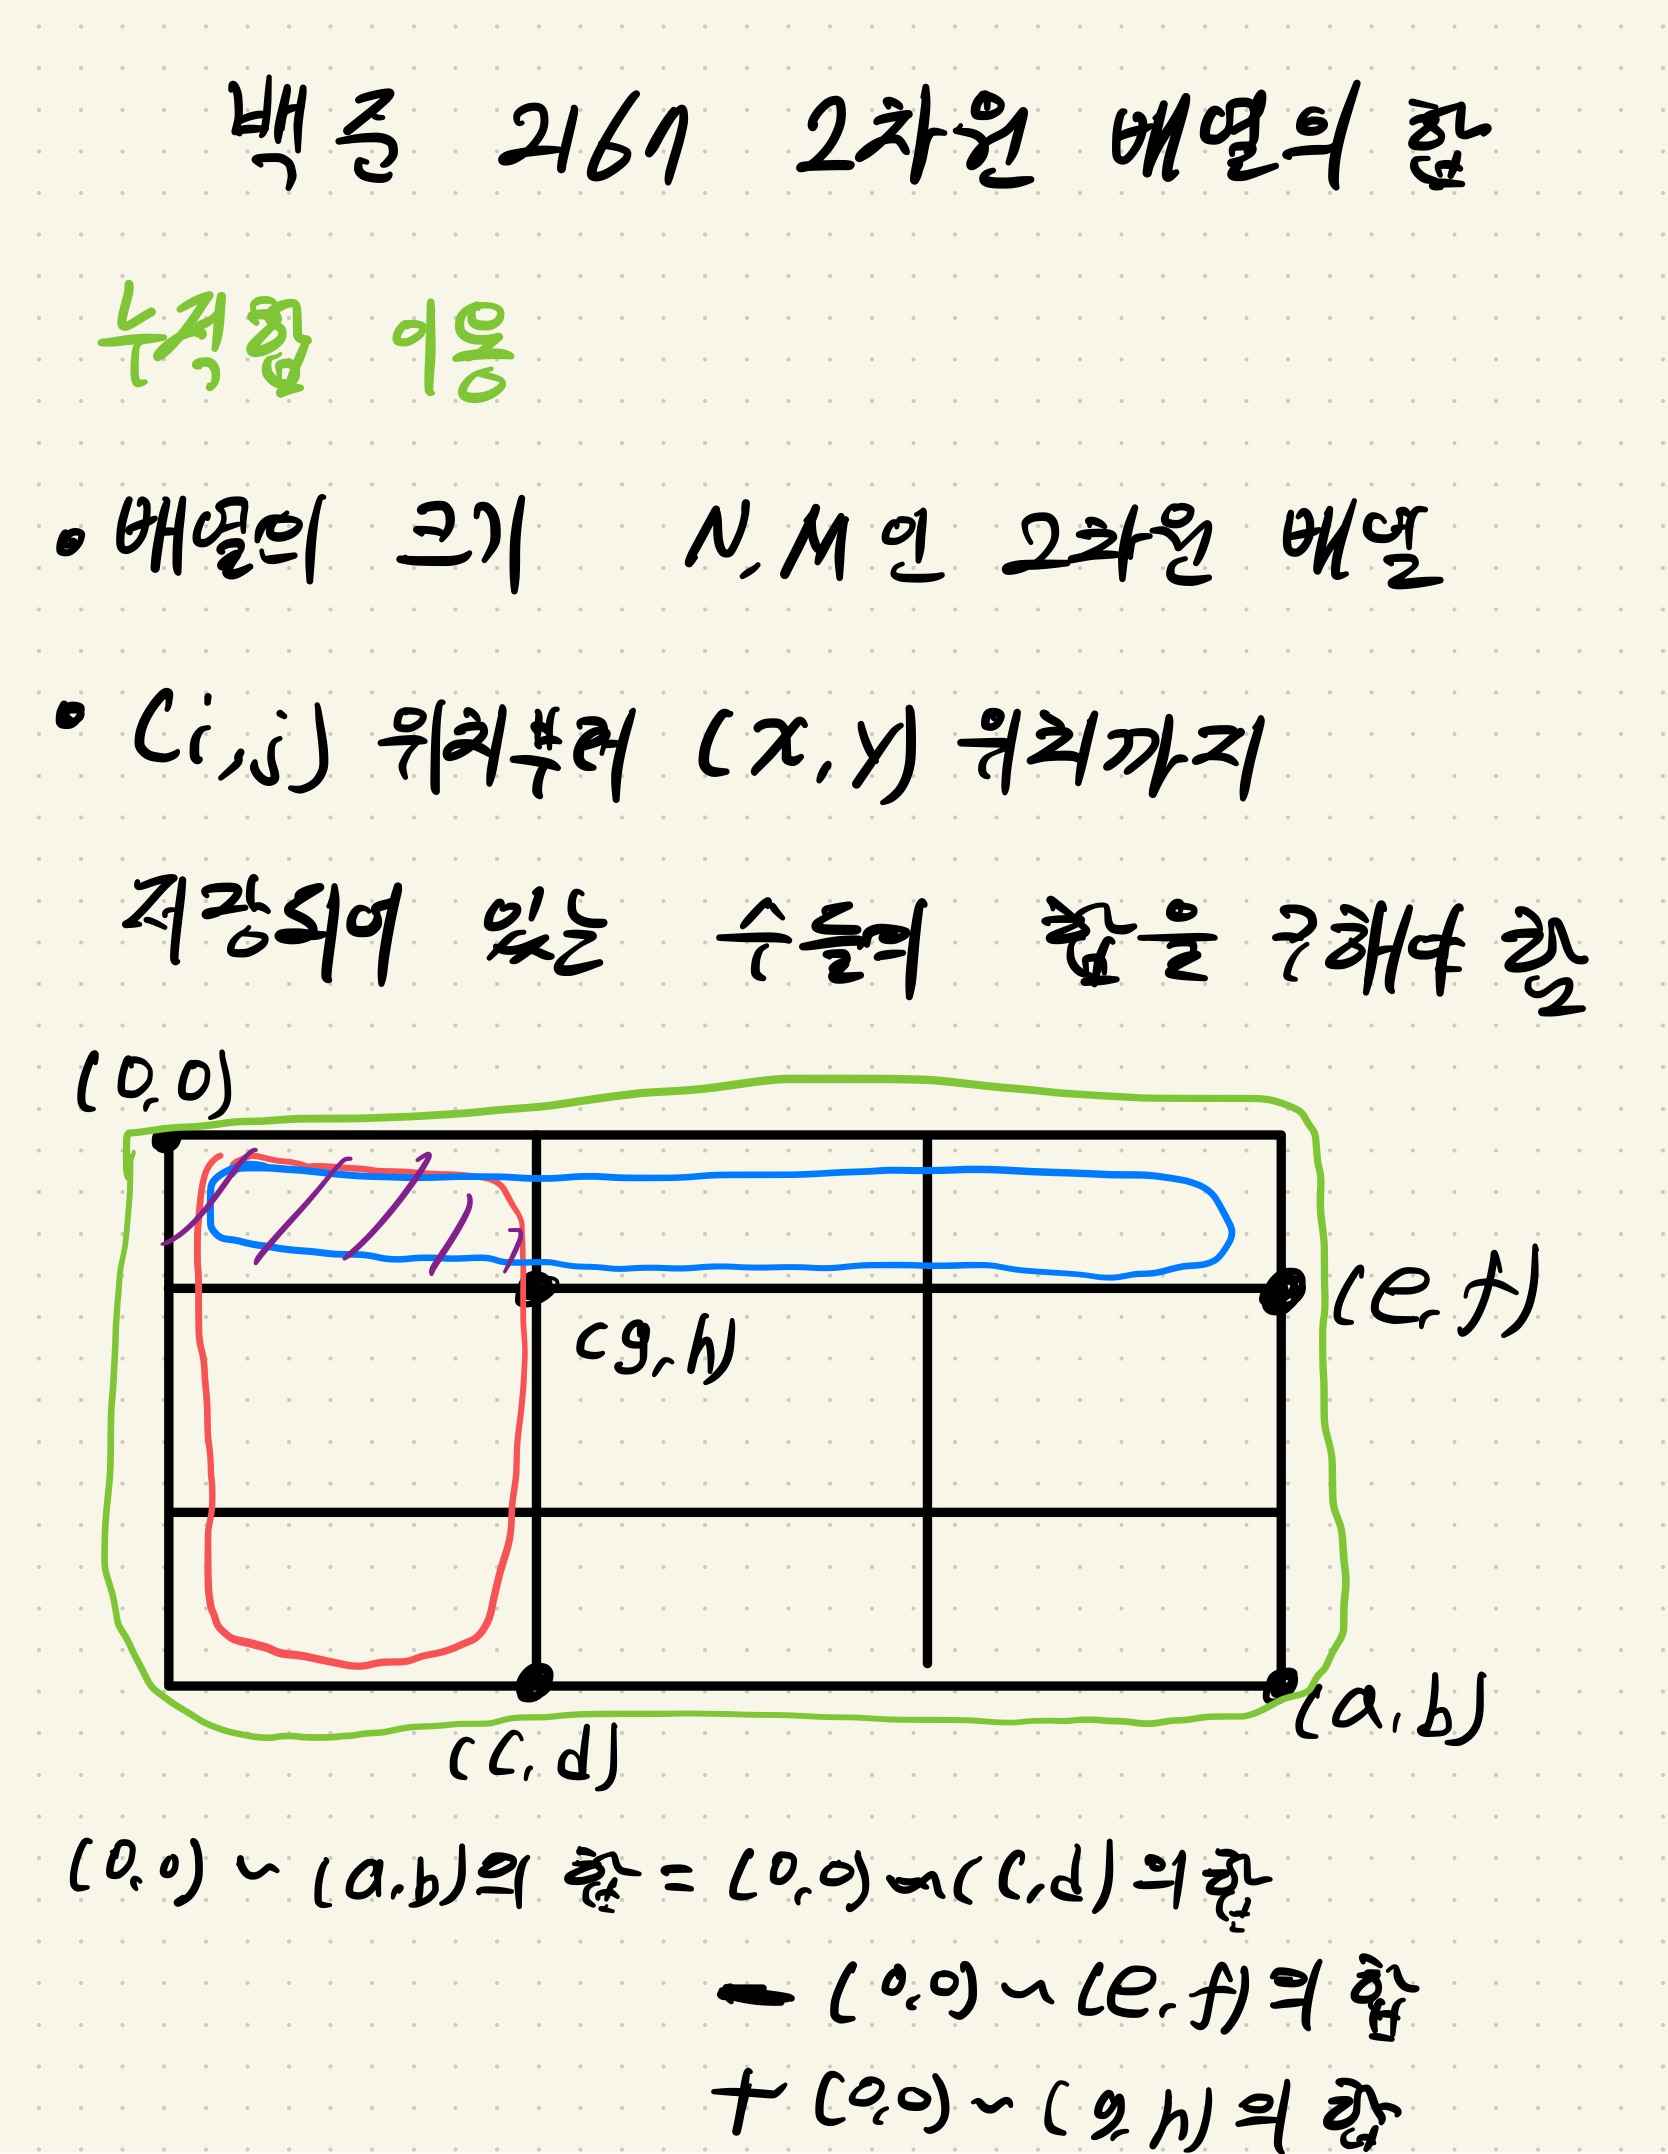 백준 2167 2차원 배열의 합
누적합 이용
• 배열의 크기 N, M인 2차원 배열
• (i, j) 위치부터 (x, y) 위치까지
저장되어 있는 수들의 합을 구해야 함
(0,0)
(e, f)
(g, h)
(a, b)
(c, d)
(0,0) ~ (a,b)의 합 = (0,0) ~ (c,d)의 합
- (0,0) ~ (e, f)의 합
+ (0,0) ~ (g, h)의 합